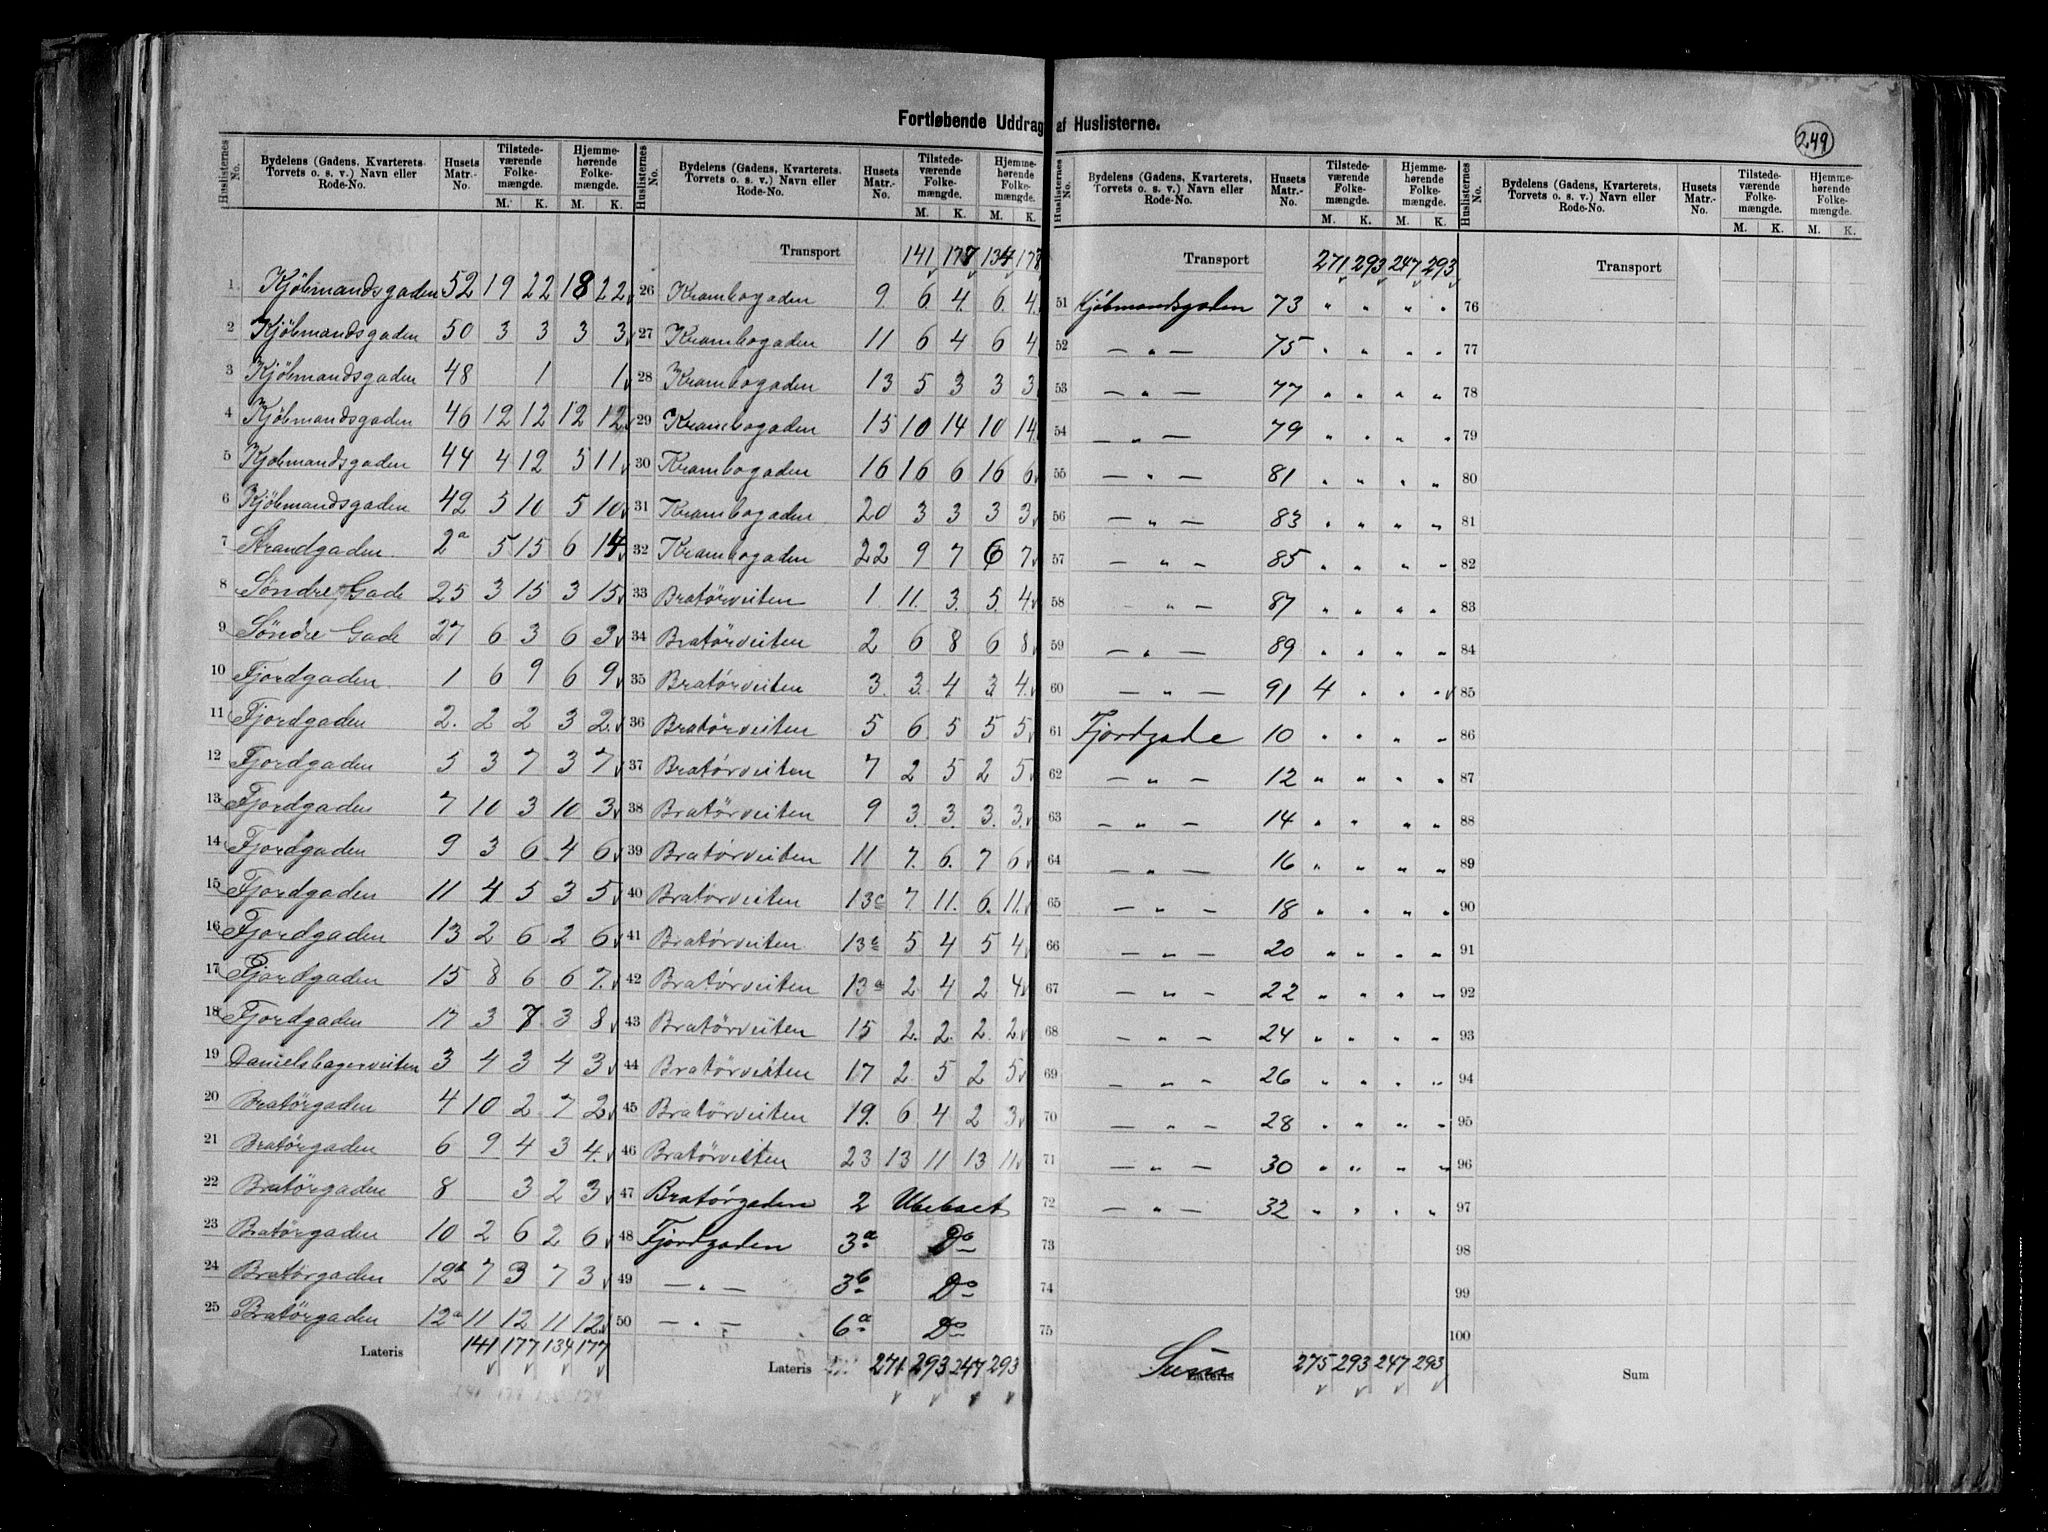 Fortløbende Uddrag af Huslisterne.
249
Huslisternes No. Bydelens (Gadens, Kvarterets, Torvets o. s. v.) Navn eller Rode-No. Husets Matr.-No. Tilstedeværende Folkemængde. M. K. Hjemmehørende Folkemængde. M. K.
1 Kjöbmandsgaden 52 19 22 18 22
2 Kjöbmandsgaden 50 3 3 3 3
3 Kjöbmandsgaden 48 1 1
4 Kjöbmandsgaden 46 12 12 12 12
5 Kjöbmandsgaden 44 4 12 5 11
6 Kjöbmandsgaden 42 5 10 5 10
7 Strandgaden 2a 5 15 6 14
8 Söndre Gade 25 3 15 3 15
9 Söndre Gade 27 6 3 6 3
10 Fjordgaden 1 6 9 6 9
11 Fjordgaden 2. 2 2 3 2
12 Fjordgaden 5 3 7 3 7
13 Fjordgaden 7 10 3 10 3
14 Fjordgaden 9 3 6 4 6
15 Fjordgaden 11 4 5 3 5
16 Fjordgaden 13 2 6 2 6
17 Fjordgaden 15 8 6 6 7
18 Fjordgaden 17 3 7 3 8
19 Danielsbagerveiten 3 4 3 4 3
20 Bratörgaden 4 10 2 7 2
21 Bratörgaden 6 9 4 3 4
22 Bratörgaden 8 3 2 3
23 Bratörgaden 10 2 6 2 6
24 Bratörgaden 12b 7 3 7 3
25 Bratörgaden 12a 11 12 11 12
Lateris 141 177 134 177
Huslisternes No. Bydelens (Gadens, Kvarterets, Torvets o. s. v.) Navn eller Rode-No. Husets Matr.-No. Tilstedeværende Folkemængde. M. K. Hjemmehørende Folkemængde. M. K.
Transport 141 177 134 178
26 Krambogaden 9. 6. 4. 6. 4.
27 Krambogaden 11 6 4 6 4
28 Krambogaden 13 5 3 3 3
29 Krambogaden 15 10 14 10 14
30 Krambogaden 16 16 6 16 6
31 Krambogaden 20 3 3 3 3
32 Krambogaden 22 9 7 6 7
33 Bratörveiten 1 11. 3. 5. 4
34 Bratörveiten 2 6 8 6 8
35 Bratörveiten 3. 3. 4 3 4.
36 Bratörveiten 5 6. 5 5 5
37 Bratörveiten 7 2 5 2 5
38 Bratörveiten 9 3. 3. 3. 3.
39 Bratörveiten 11 7. 6. 7 6
40 Bratörveiten 13c 7. 11. 6. 11.
41 Bratörveiten 13b 5 4 5 4
42 Bratörveiten 13a 2 4 2 4
43 Bratörveiten 15 2. 2. 2. 2
44 Bratörveiten 17 2 5 2 5
45 Bratörveiten 19. 6 4 2 3
46 Bratörveiten 23 13 11 13 11
47 Bratörgaden 2 Ubeboet
48 Fjordgaden 3a Do
49 — " — 3b Do
50 — " — 6a Do
Lateris 271 293 247 293
Huslisternes No. Bydelens (Gadens, Kvarterets, Torvets o. s. v.) Navn eller Rode-No. Husets Matr.-No. Tilstedeværende Folkemængde. M. K. Hjemmehørende Folkemængde. M. K.
Transport 271 293 247 293
51 Kjöbmandsgaden 73 " " " "
52 — " — 75 " " " "
53 — " — 77 " " " "
54 — " — 79 " " " "
55 — " — 81 " " " "
56 — " — 83 " " " "
57 — " — 85 " " " "
58 — " — 87 " " " "
59 — " — 89 " " " "
60 — " — 91 4 " " "
61 Fjordgade 10 " " " "
62 — " — 12 " " " "
63 — " — 14 " " " "
64 — " — 16 " " " "
65 — " — 18 " " " "
66 — " — 20 " " " "
67 — " — 22 " " " "
68 — " — 24 " " " "
69 — " — 26 " " " "
70 — " — 28 " " " "
71 — " — 30 " " " "
72 — " — 32 " " " "
73
74
75
Lateris Sum 275 293 247 293
Huslisternes No. Bydelens (Gadens, Kvarterets, Torvets o. s. v.) Navn eller Rode-No. Husets Matr.-No. Tilstedeværende Folkemængde. M. K. Hjemmehørende Folkemængde. M. K.
Transport
76
77
78
79
80
81
82
83
84
85
86
87
88
89
90
91
92
93
94
95
96
97
98
99
100
Sum